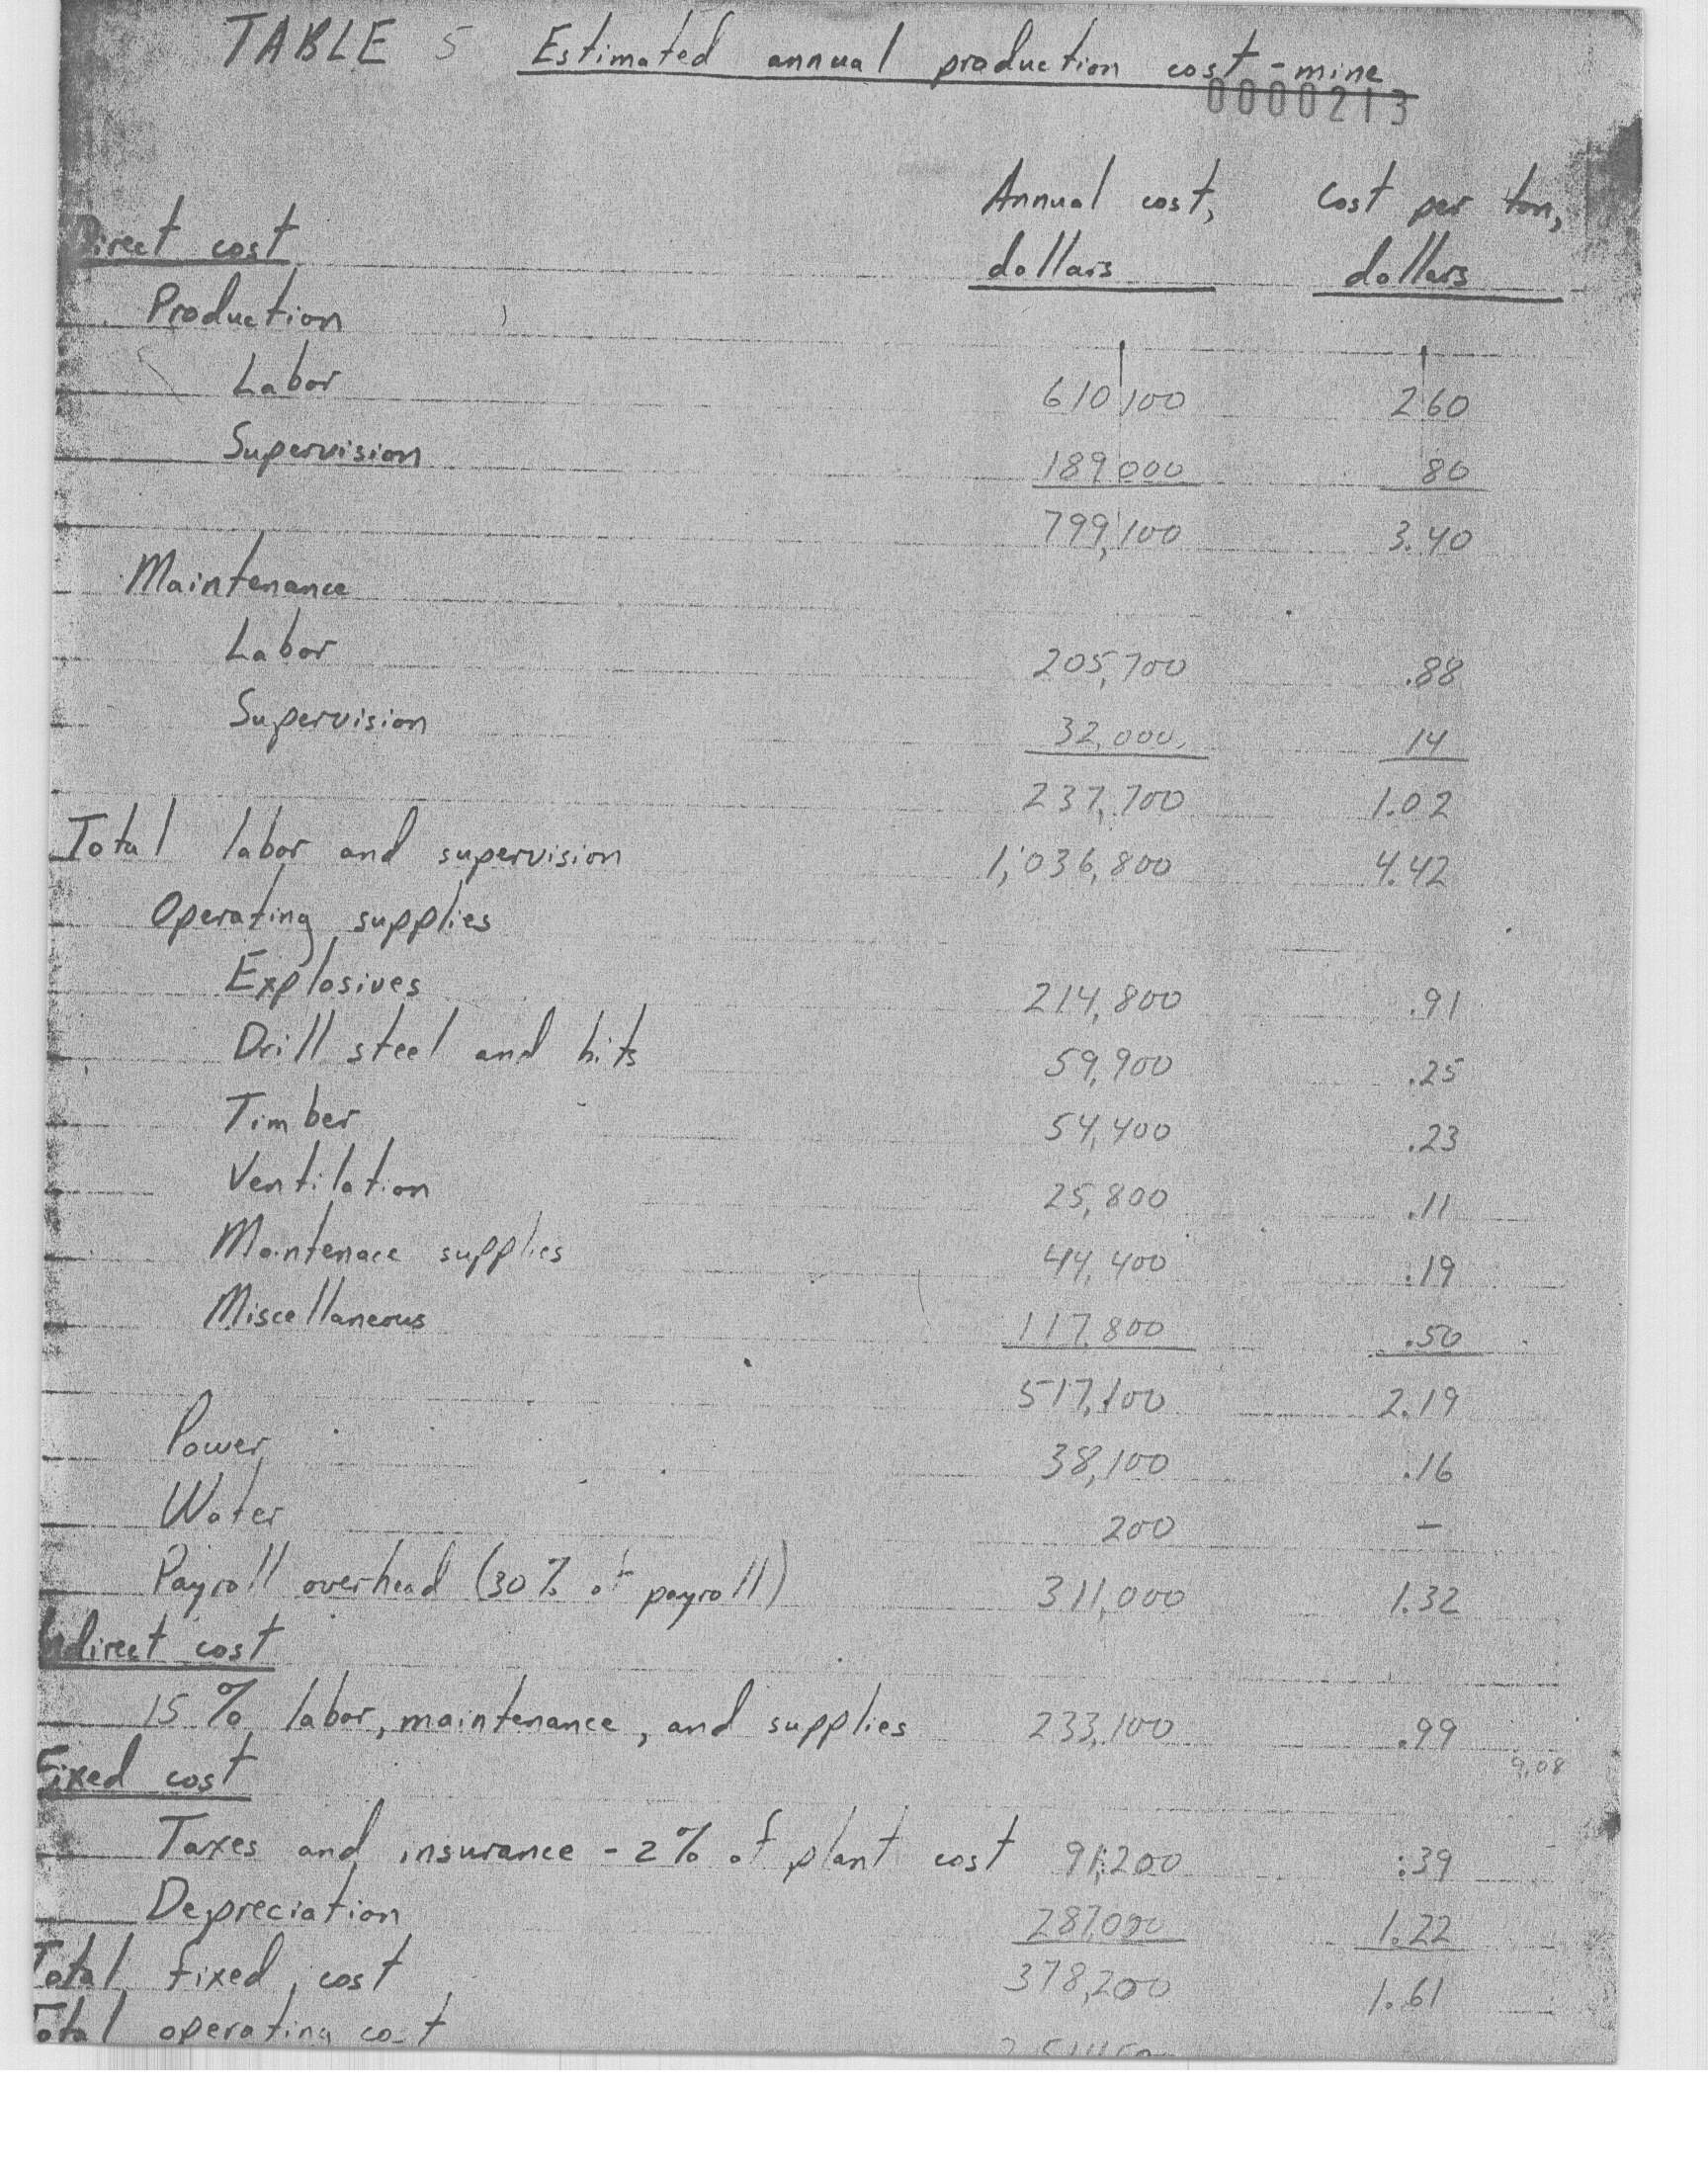 TABLE 5 Estimated annual production cost - mine
0000213
Annual cost, Cost per ton,
Direct cost dollars dollars
Production
Labor 610,100 2.60
Supervision 189,000 80
799,100 3.40
Maintenance
Labor 205,700 .88
Supervision 32,000 14
237,700 1.02
Total labor and supervision 1,036,800 4.42
Operating supplies
Explosives 214,800 .91
Drill steel and bits 59,900 .25
Timber 54,400 .23
Ventilation 25,800 .11
Maintenace supplies 44,400 .19
Miscellaneous 117,800 .50
517,100 2.19
Power 38,100 .16
Water 200 —
Payroll overhead (30% of payroll) 311,000 1.32
Indirect cost
15%, labor, maintenance, and supplies 233,100 .99
9.08
Fixed cost
Taxes and insurance - 2% of plant cost 91,200 .39
Depreciation 287,000 1.22
Total fixed cost 378,200 1.61
Total operating cost